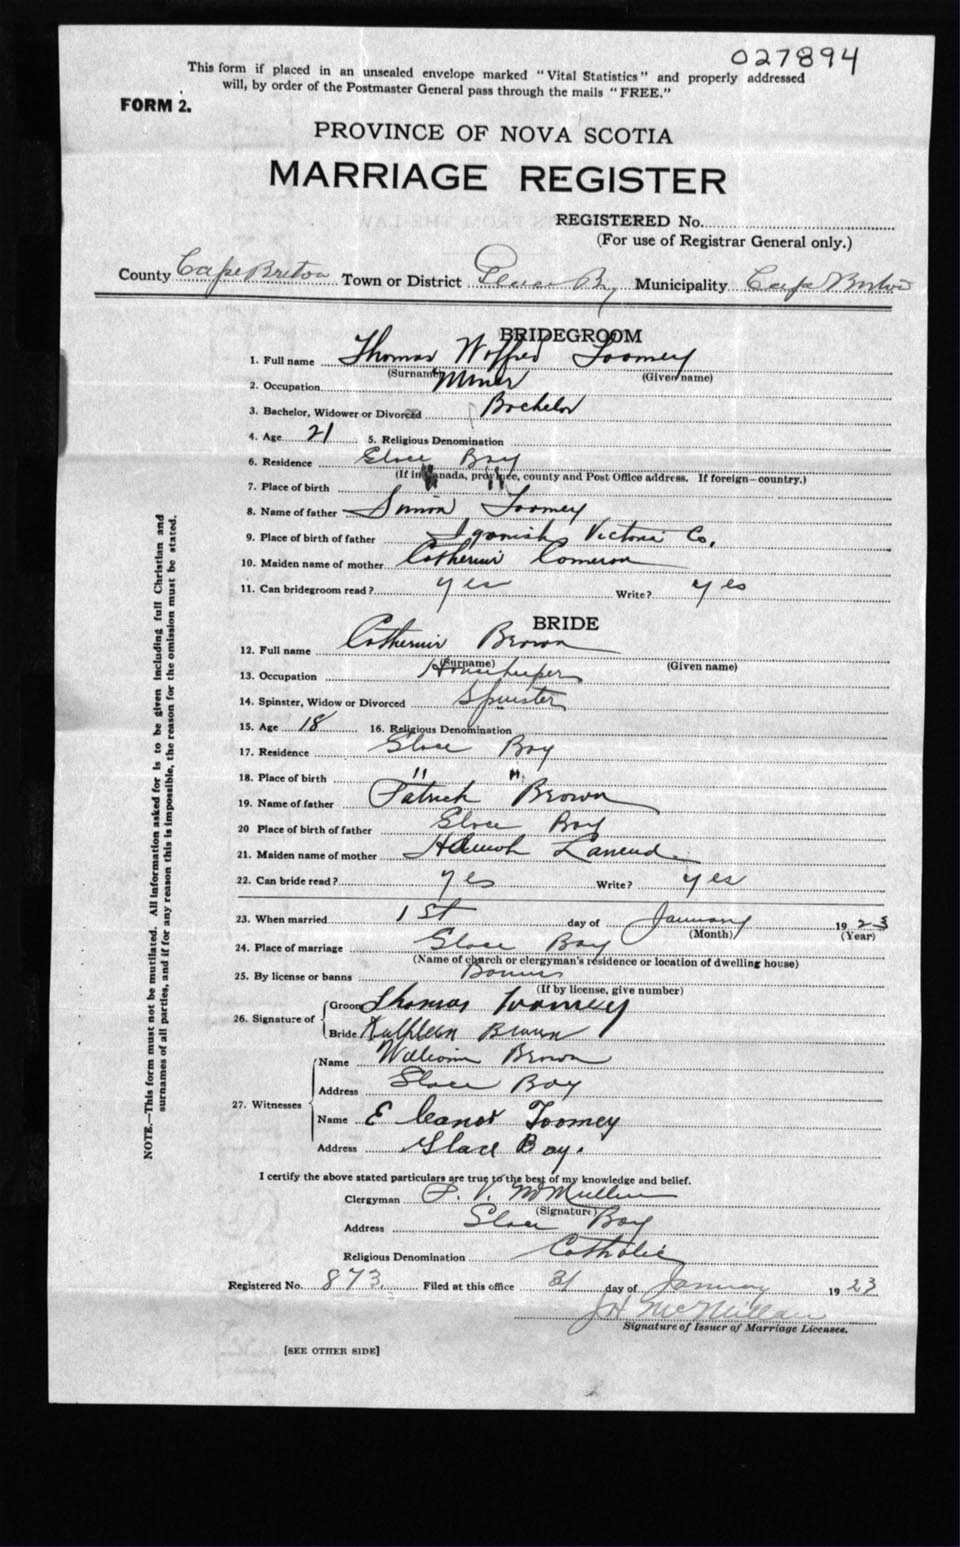 027894
This form if placed in an unsealed envelope marked "Vital Statistics" and properly addressed
will, by order of the Postmaster General pass through the mails "FREE."
FORM 2.
PROVINCE OF NOVA SCOTIA
MARRIAGE REGISTER
REGISTERED No.
(For use of Registrar General only.)
County Cape Breton Town or District Glace Bay Municipality Cape Breton
BRIDEGROOM
1. Full name Thomas Toomey
(Surname) (Given name)
2. Occupation Miner
3. Bachelor, Widower or Divorced Bachelor
4. Age 21 5. Religious Denomination
6. Residence Glace Bay
(If in Canada, province, county and Post Office address. If foreign—country.)
7. Place of birth " "
8. Name of father Simon Toomey
9. Place of birth of father Ingonish Victoria Co.
10. Maiden name of mother Catherine Cameron
11. Can bridegroom read? yes Write? yes
BRIDE
12. Full name Catherine Brown
(Surname) (Given name)
13. Occupation Housekeeper
14. Spinster, Widow or Divorced Spinster
15. Age 18 16. Religious Denomination
17. Residence Glace Bay
18. Place of birth " "
19. Name of father Patrick Brown
20 Place of birth of father Glace Bay
21. Maiden name of mother Hannah
22. Can bride read? yes Write? yes
23. When married 1st day of January 1923
(Month) (Year)
24. Place of marriage Glace Bay
(Name of church or clergyman's residence or location of dwelling house)
25. By license or banns Banns
(If by license, give number)
26. Signature of Groom Thomas Toomey
Bride Kathleen Brown
27. Witnesses Name William Brown
Address Glace Bay
Name Eleanor Toomey
Address Glace Bay.
I certify the above stated particulars are true to the best of my knowledge and belief.
Clergyman McMullin
(Signature)
Address Glace Bay
Religious Denomination Catholic
Registered No. 873 Filed at this office 31 day of January 1923
JH McMillan
Signature of Issuer of Marriage Licenses.
[SEE OTHER SIDE]
NOTE.—This form must not be mutilated. All information asked for is to be given including full Christian and
surnames of all parties, and if for any reason this is impossible, the reason for the omission must be stated.